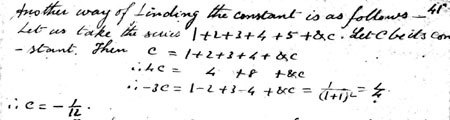 Another way of finding the constant is as follows — 48
Let us take the series 1+2+3+4+5+&c. Let C be its con
- stant. Then c = 1+2+3+4+&c
∴ 4c = 4 +8 +&c
∴ -3c = 1-2+3-4+&c = 1/(1+1)² = 1/4
∴ c = -1/12.